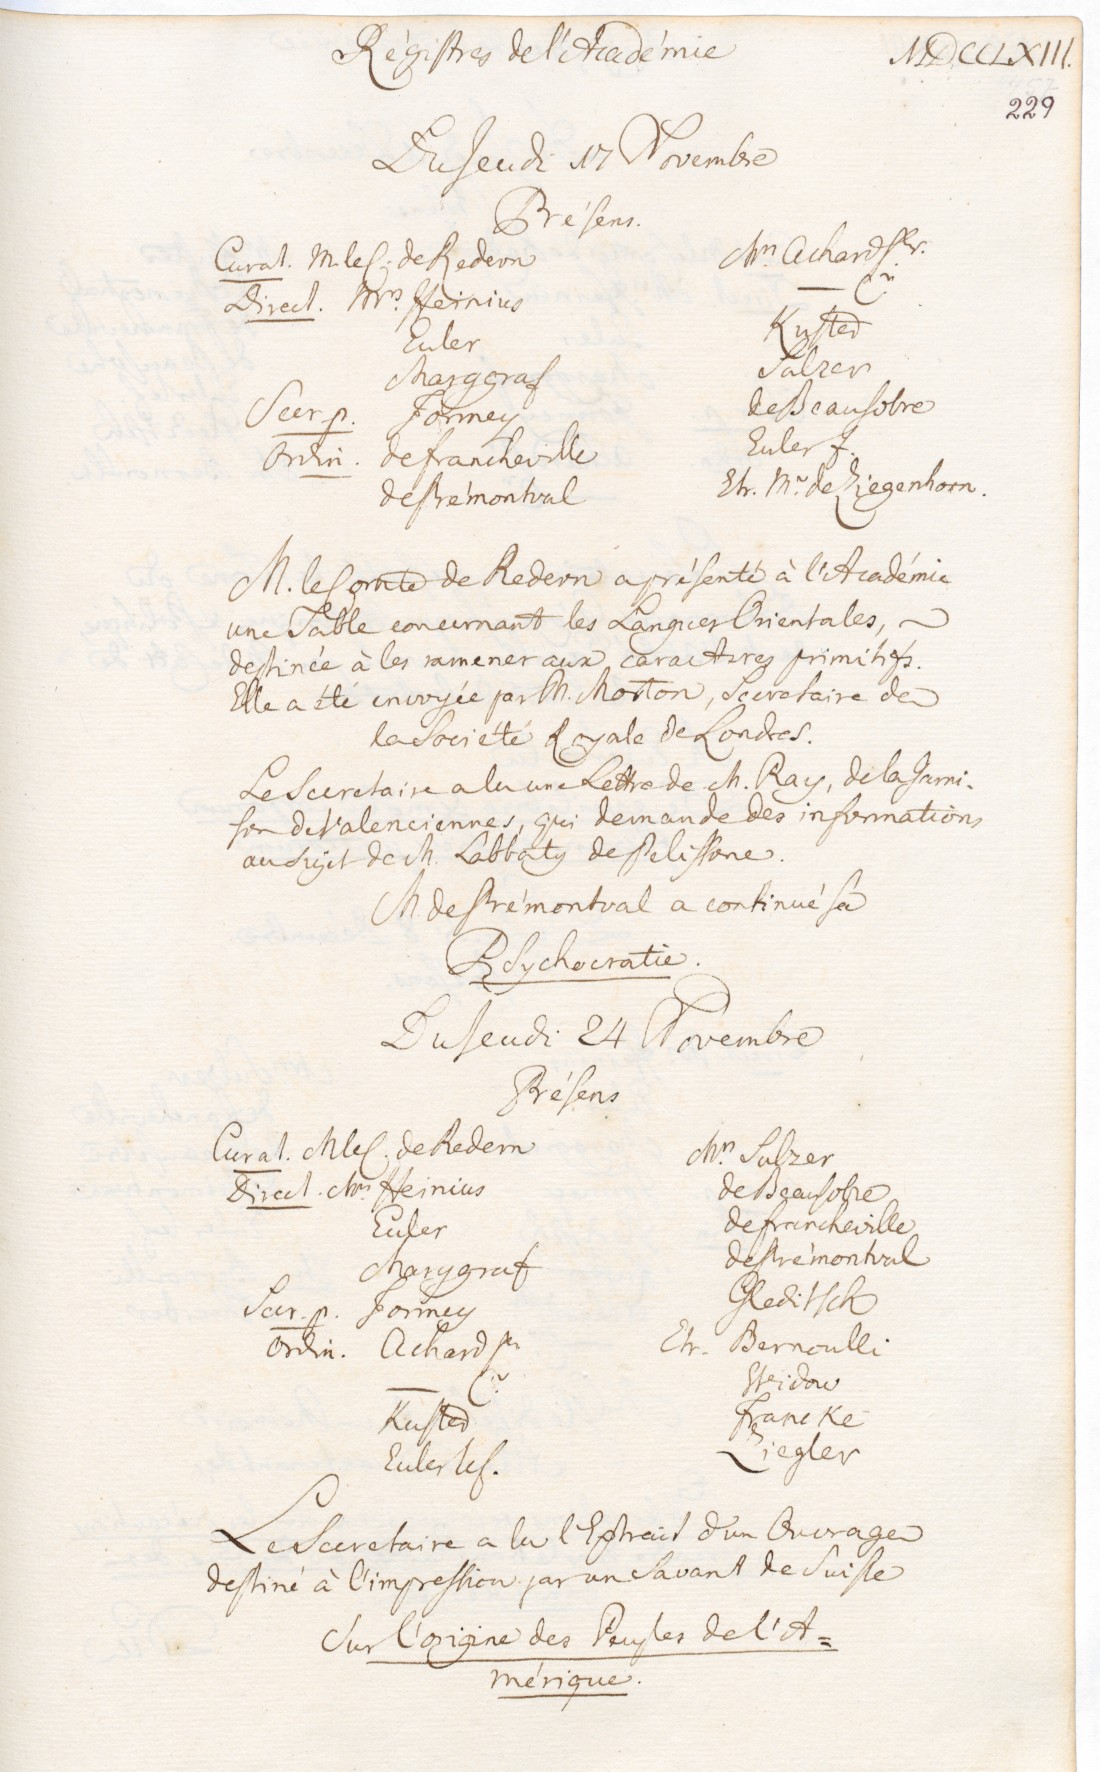 Régistres de l'Académie
MDCCLXIII.
229
Du Jeudi 17 Novembre
Présens.
Curat. M. le C. de Redern
Direct. Mrs. Heinius
Euler
Marggraf
Secr. p. Formey
Ordin. de Francheville
de Prémontval
Mrs. Achard Pr.
Kusted
Sulzer
de Beausobre
Euler f.
Etr. Mr. de Ziegenhorn.
M. le Comte de Redern a présenté à l'Académie
une Table concernant les Langues Orientales,
destinée à les ramener aux caractères primitifs.
Elle a été envoyée par M. Morton, Secretaire de
la Société Royale de Londres.
Le Secretaire a lu une Lettre de M. Ray, de la Garni-
son de Valenciennes, qui demande des informations
au sujet de M. Labbaty de Pelissone.
M. de Prémontval a continué sa
Psychocratie.
Du Jeudi 24 Novembre
Présens
Curat. M le C. de Redern
Direct. Mrs Heinius
Euler
Marggraf
Secr. p. Formey
Ordin. Achard Pr
Kusted
Euler le f.
Mrs. Sulzer
de Beausobre
de Francheville
de Prémontval
Gleditsch
Etr. Bernoulli
Francke
Ziegler
Le Secretaire a lu l'Extrait d'un Ouvrage
destiné à l'impression par un Savant de Suisse
Sur l'origine des Peuples de l'A=
mérique.